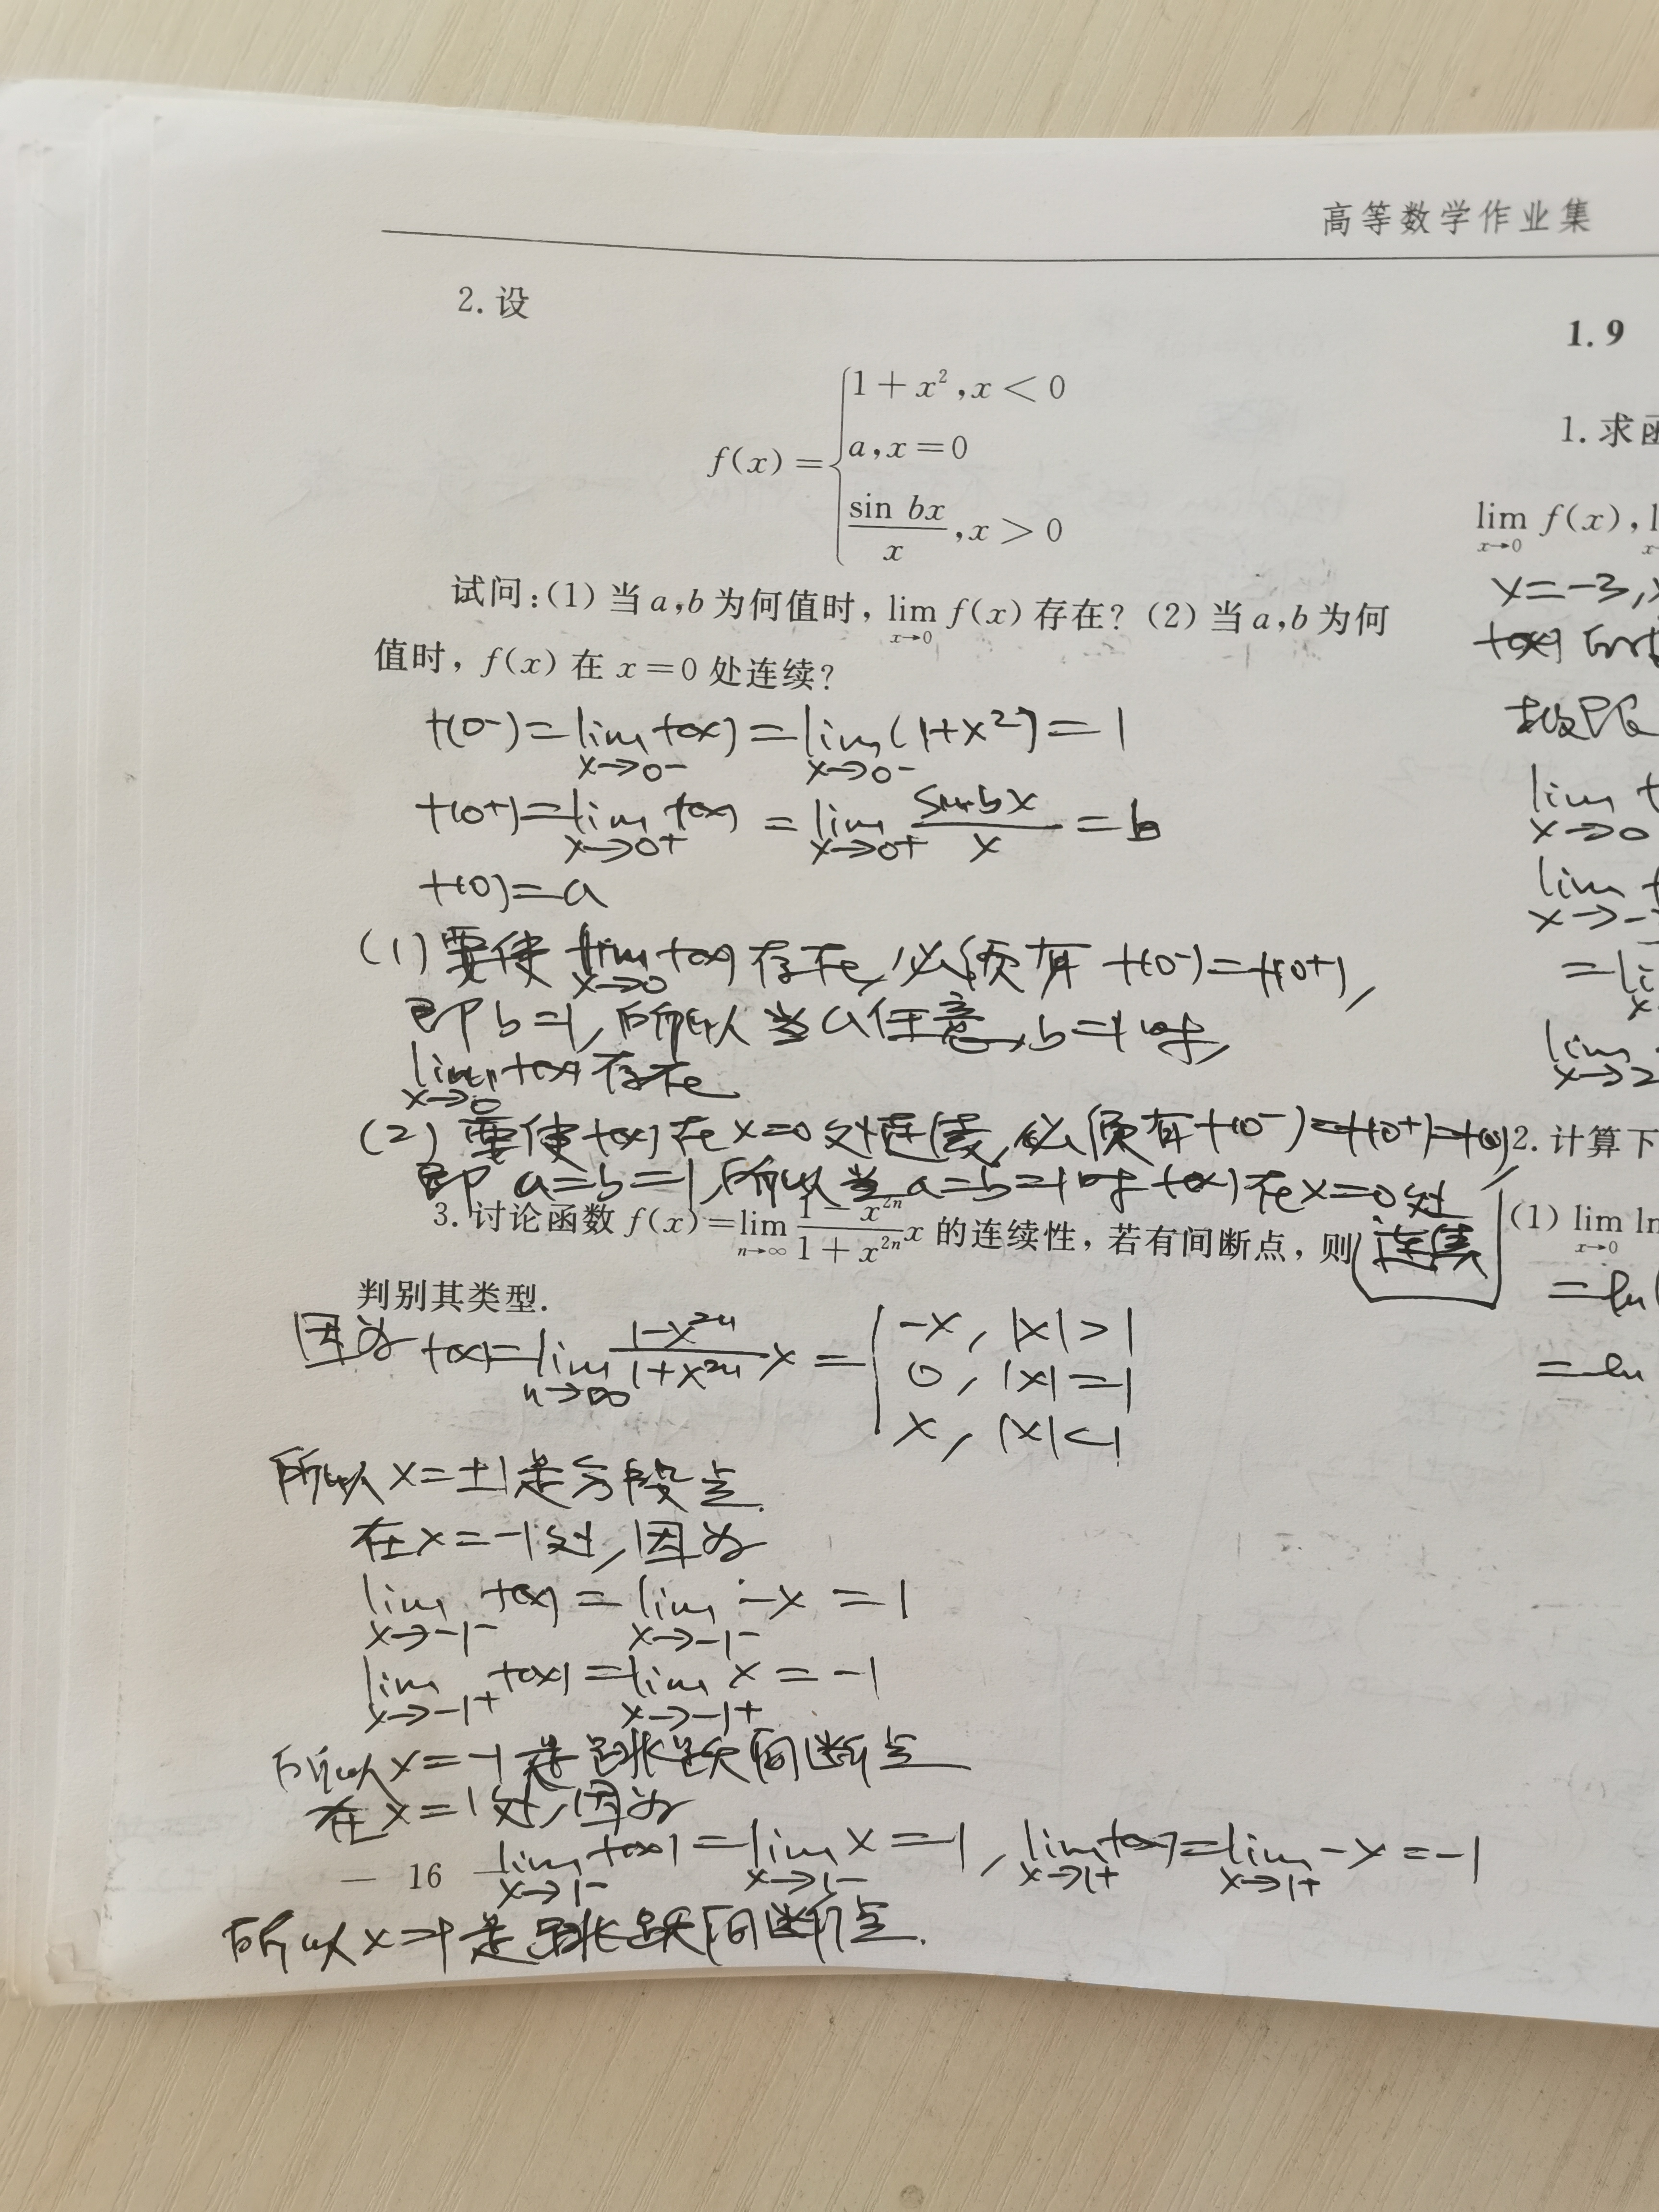 高等数学作业集
2. 设
f(x) = { 1 + x², x < 0
a, x = 0
sin bx / x, x > 0
试问:(1) 当 a,b 为何值时, lim x→0 f(x) 存在? (2) 当 a,b 为何
值时, f(x) 在 x = 0 处连续?
f(0-) = lim x→0- f(x) = lim x→0- (1+x²) = 1
f(0+) = lim x→0+ f(x) = lim x→0+ sinbx / x = b
f(0) = a
(1) 要使 lim x→0 f(x) 存在, 必须有 f(0-) = f(0+),
即 b=1, 所以当 a 任意, b=1 时,
lim x→0 f(x) 存在
(2) 要使 f(x) 在 x=0 处连续, 必须有 f(0-) = f(0+) = f(0)
即 a=b=1, 所以当 a=b=1 时 f(x) 在 x=0 处
连续
3. 讨论函数 f(x) = lim n→∞ (1 - x²ⁿ)/(1 + x²ⁿ) x 的连续性, 若有间断点, 则
判别其类型.
因为 f(x) = lim n→∞ (1-x²ⁿ)/(1+x²ⁿ) x = { -x, |x|>1
0, |x|=1
x, |x|<1
所以 x=±1 是分段点.
在 x=-1 处, 因为
lim x→-1- f(x) = lim x→-1- -x = 1
lim x→-1+ f(x) = lim x→-1+ x = -1
所以 x=-1 是跳跃间断点
在 x=1 处, 因为
lim x→1- f(x) = lim x→1- x = 1, lim x→1+ f(x) = lim x→1+ -x = -1
— 16
所以 x=1 是跳跃间断点.
1.9
1. 求
lim x→0 f(x),
x=-3,
lim x→0
lim x→-
= li
lim x→2
2. 计算下
(1) lim x→0 ln
= ln(
= ln